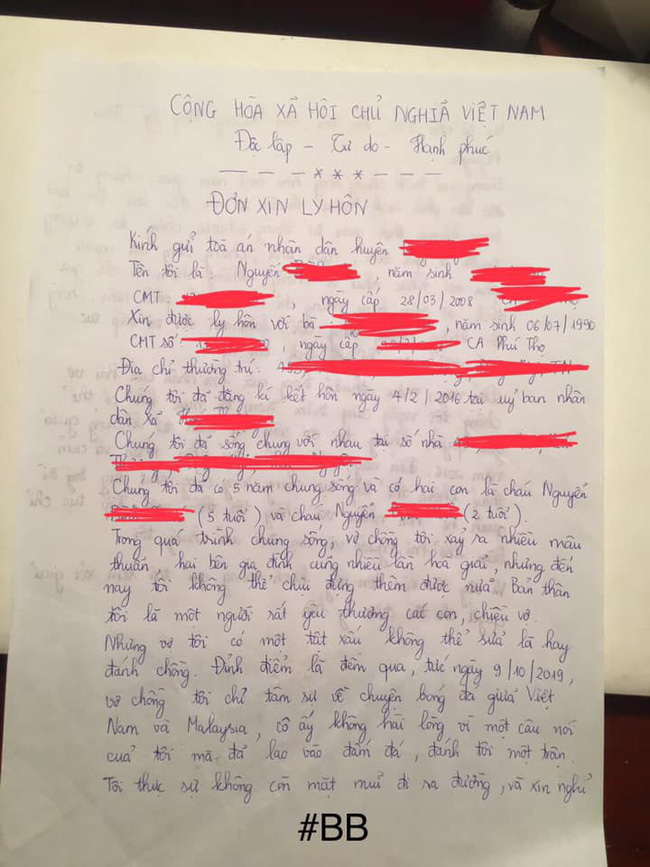 CỘNG HÒA XÃ HỘI CHỦ NGHĨA VIỆT NAM
Độc lập - Tự do - Hạnh phúc
— — - * * * - — —
ĐƠN XIN LY HÔN
Kính gửi toà án nhân dân huyện
Tên tôi là Nguyễn , năm sinh
CMT : , ngày cấp 28/03/2008
Xin được ly hôn với bà : , năm sinh 06/07/1990
CMT số : , ngày cấp CA Phú Thọ
Địa chỉ thường trú:
Chúng tôi đã đăng kí kết hôn ngày 4/2/2016 tại uỷ ban nhân
dân xã
Chúng tôi đã sống chung với nhau tại số nhà
Chúng tôi đã có 5 năm chung sống và có hai con là cháu Nguyễn
(5 tuổi) và cháu Nguyễn (2 tuổi).
Trong quá trình chung sống, vợ chồng tôi xảy ra nhiều mâu
thuẫn, hai bên gia đình cũng nhiều lần hoà giải, nhưng đến
nay tôi không thể chịu đựng thêm được nữa. Bản thân
tôi là một người rất yêu thương các con, chiều vợ.
Nhưng vợ tôi có một tật xấu không thể sửa là hay
đánh chồng. Đỉnh điểm là đêm qua, tức ngày 9/10/2019,
vợ chồng tôi chỉ tâm sự về chuyện bóng đá giữa Việt
Nam và Malaysia, cô ấy không hài lòng vì một câu nói
của tôi mà đã lao vào đấm đá, đánh tôi một trận.
Tôi thực sự không còn mặt mũi đi ra đường, và xin nghỉ
#BB